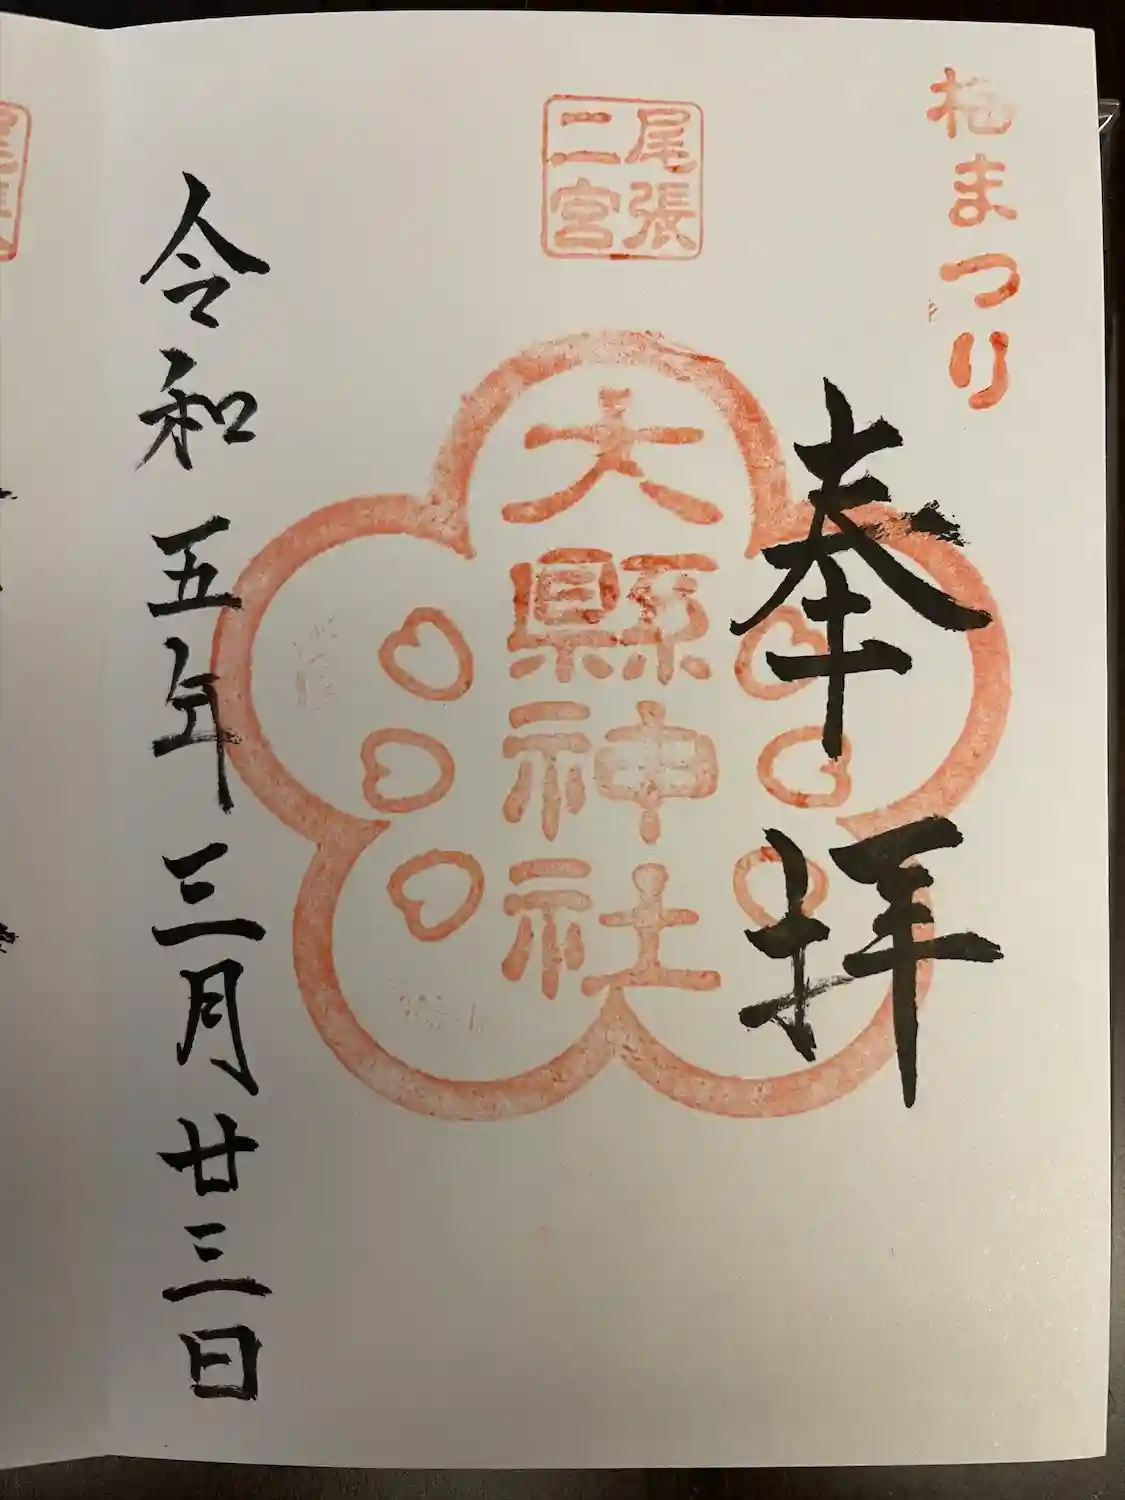 梅まつり
奉拝
尾張
二宮
大縣神社
令和五年三月廿三日